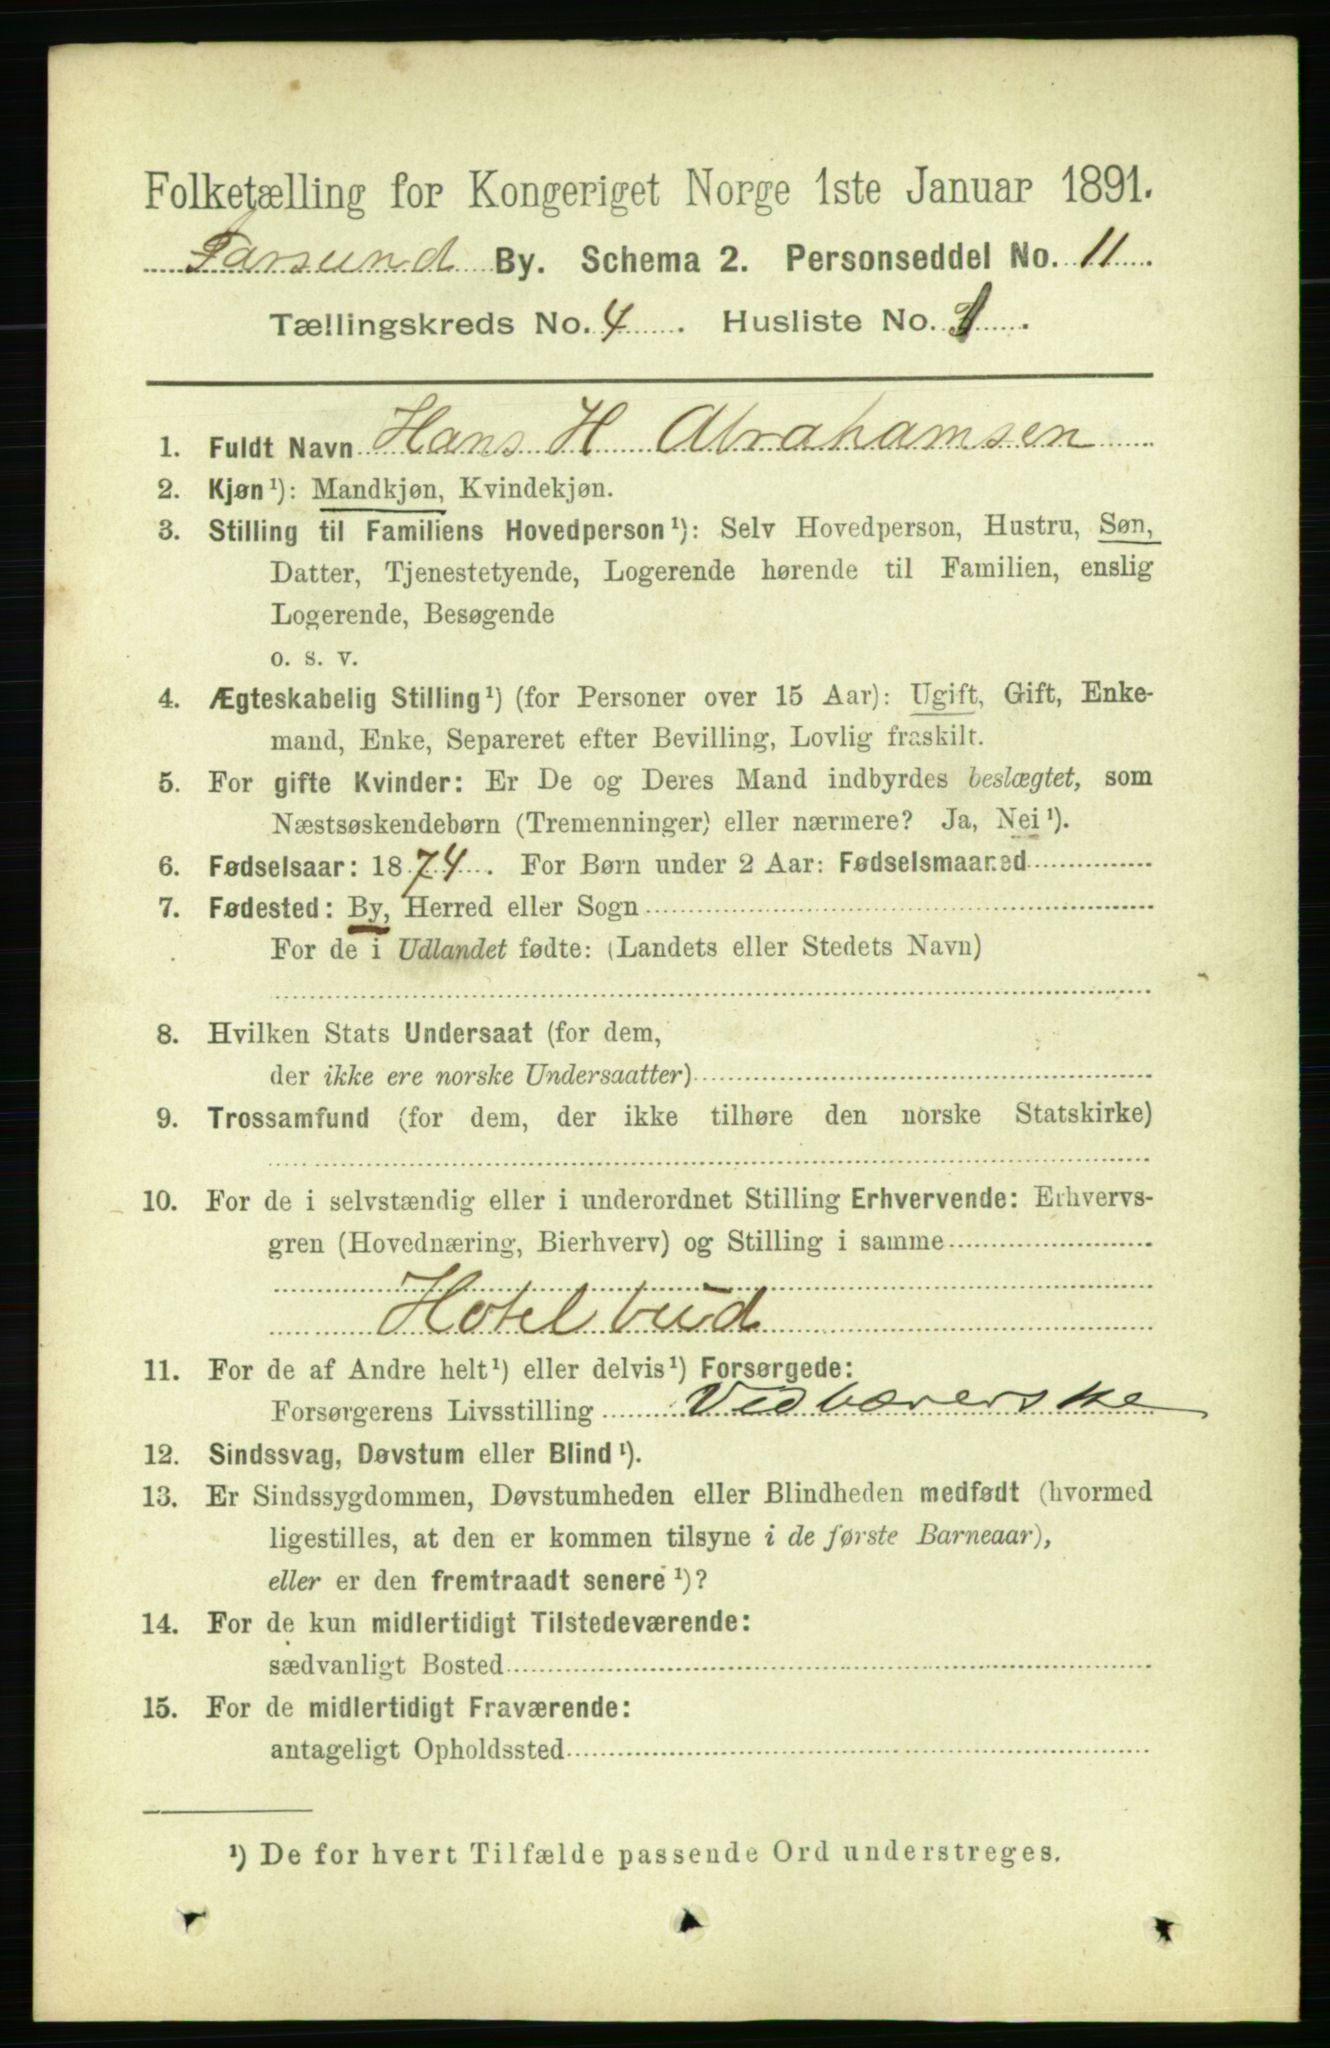 Folketælling for Kongeriget Norge 1ste Januar 1891.
Farsund By. Schema 2. Personseddel No. 11.
Tællingskreds No. 4. Husliste No. 1.
1. Fuldt Navn Hans H Abrahamsen
2. Kjøn¹): Mandkjøn, Kvindekjøn.
3. Stilling til Familiens Hovedperson¹): Selv Hovedperson, Hustru, Søn,
Datter, Tjenestetyende, Logerende hørende til Familien, enslig
Logerende, Besøgende
o. s. v.
4. Ægteskabelig Stilling¹) (for Personer over 15 Aar): Ugift, Gift, Enke-
mand, Enke, Separeret efter Bevilling, Lovlig fraskilt.
5. For gifte Kvinder: Er De og Deres Mand indbyrdes beslægtet, som
Næstsøskendebørn (Tremenninger) eller nærmere? Ja, Nei¹).
6. Fødselsaar: 1874. For Børn under 2 Aar: Fødselsmaaned
7. Fødested: By, Herred eller Sogn
For de i Udlandet fødte: (Landets eller Stedets Navn)
8. Hvilken Stats Undersaat (for dem,
der ikke ere norske Undersaatter)
9. Trossamfund (for dem, der ikke tilhøre den norske Statskirke)
10. For de i selvstændig eller i underordnet Stilling Erhvervende: Erhvervs-
gren (Hovednæring, Bierhverv) og Stilling i samme
Hotelbud
11. For de af Andre helt¹) eller delvis¹) Forsørgede:
Forsørgerens Livsstilling Vedbærerske
12. Sindssvag, Døvstum eller Blind¹).
13. Er Sindssygdommen, Døvstumheden eller Blindheden medfødt (hvormed
ligestilles, at den er kommen tilsyne i de første Barneaar),
eller er den fremtraadt senere¹)?
14. For de kun midlertidigt Tilstedeværende:
sædvanligt Bosted
15. For de midlertidigt Fraværende:
antageligt Opholdssted
¹) De for hvert Tilfælde passende Ord understreges.